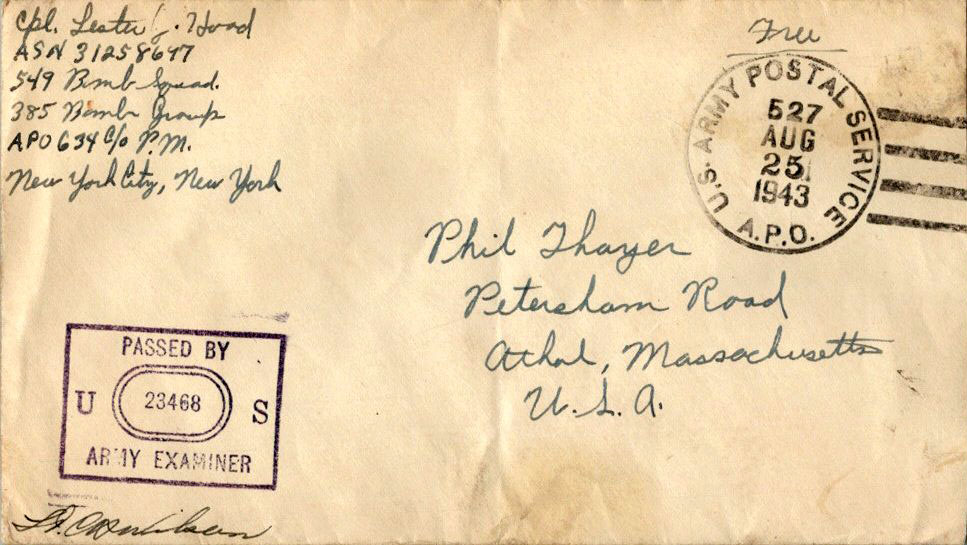 Cpl. Lester J. Hood
ASN 31258647
549 Bomb Squad.
385 Bomb Group
APO 634 C/o P.M.
New York City, New York
Free
U.S. ARMY POSTAL SERVICE
527
AUG
25
1943
A.P.O.
Phil Thayer
Petersham Road
Athol, Massachusetts
U.S.A.
PASSED BY
U 23468 S
ARMY EXAMINER
Lt.